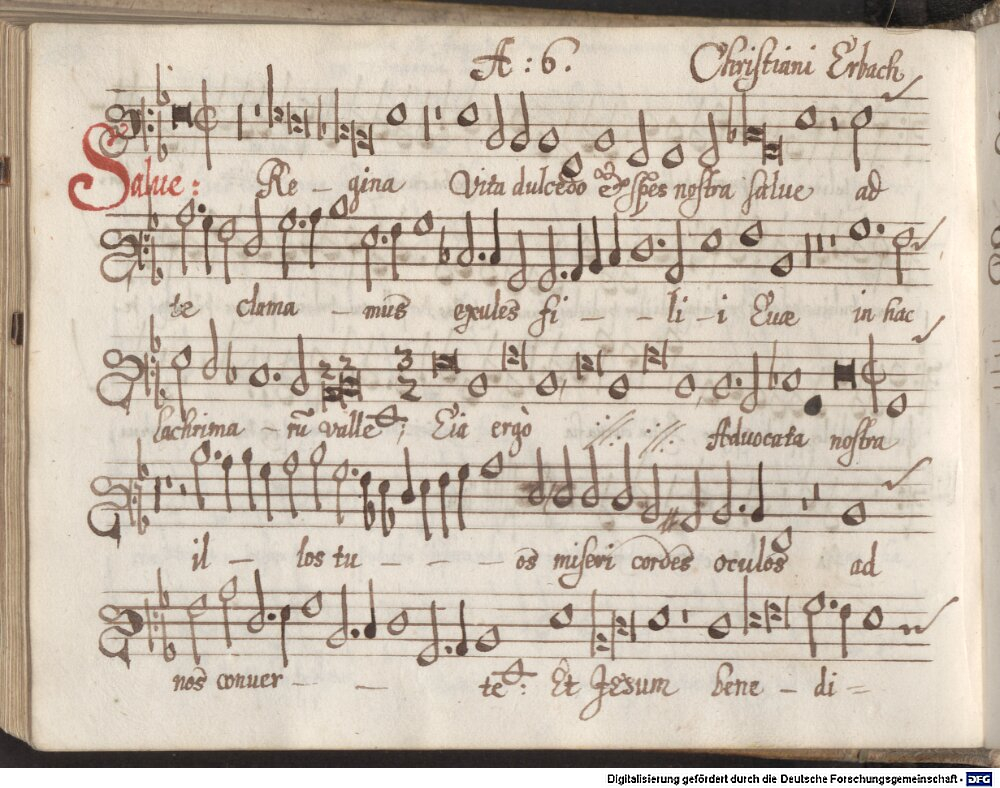 A : 6. Christiani Erbach
Salue : Re - gina Vita dulcedo & spes nostra salue ad
te clama - mus exules fi - - li - i Euæ in hac
lachrima - rū valle ; Eia ergò ./. ./. Aduocata nostra
il - los tu - - - os misericordes oculos ad
nos conuer - - te : Et Jesum bene - di =
Digitalisierung gefördert durch die Deutsche Forschungsgemeinschaft - DFG